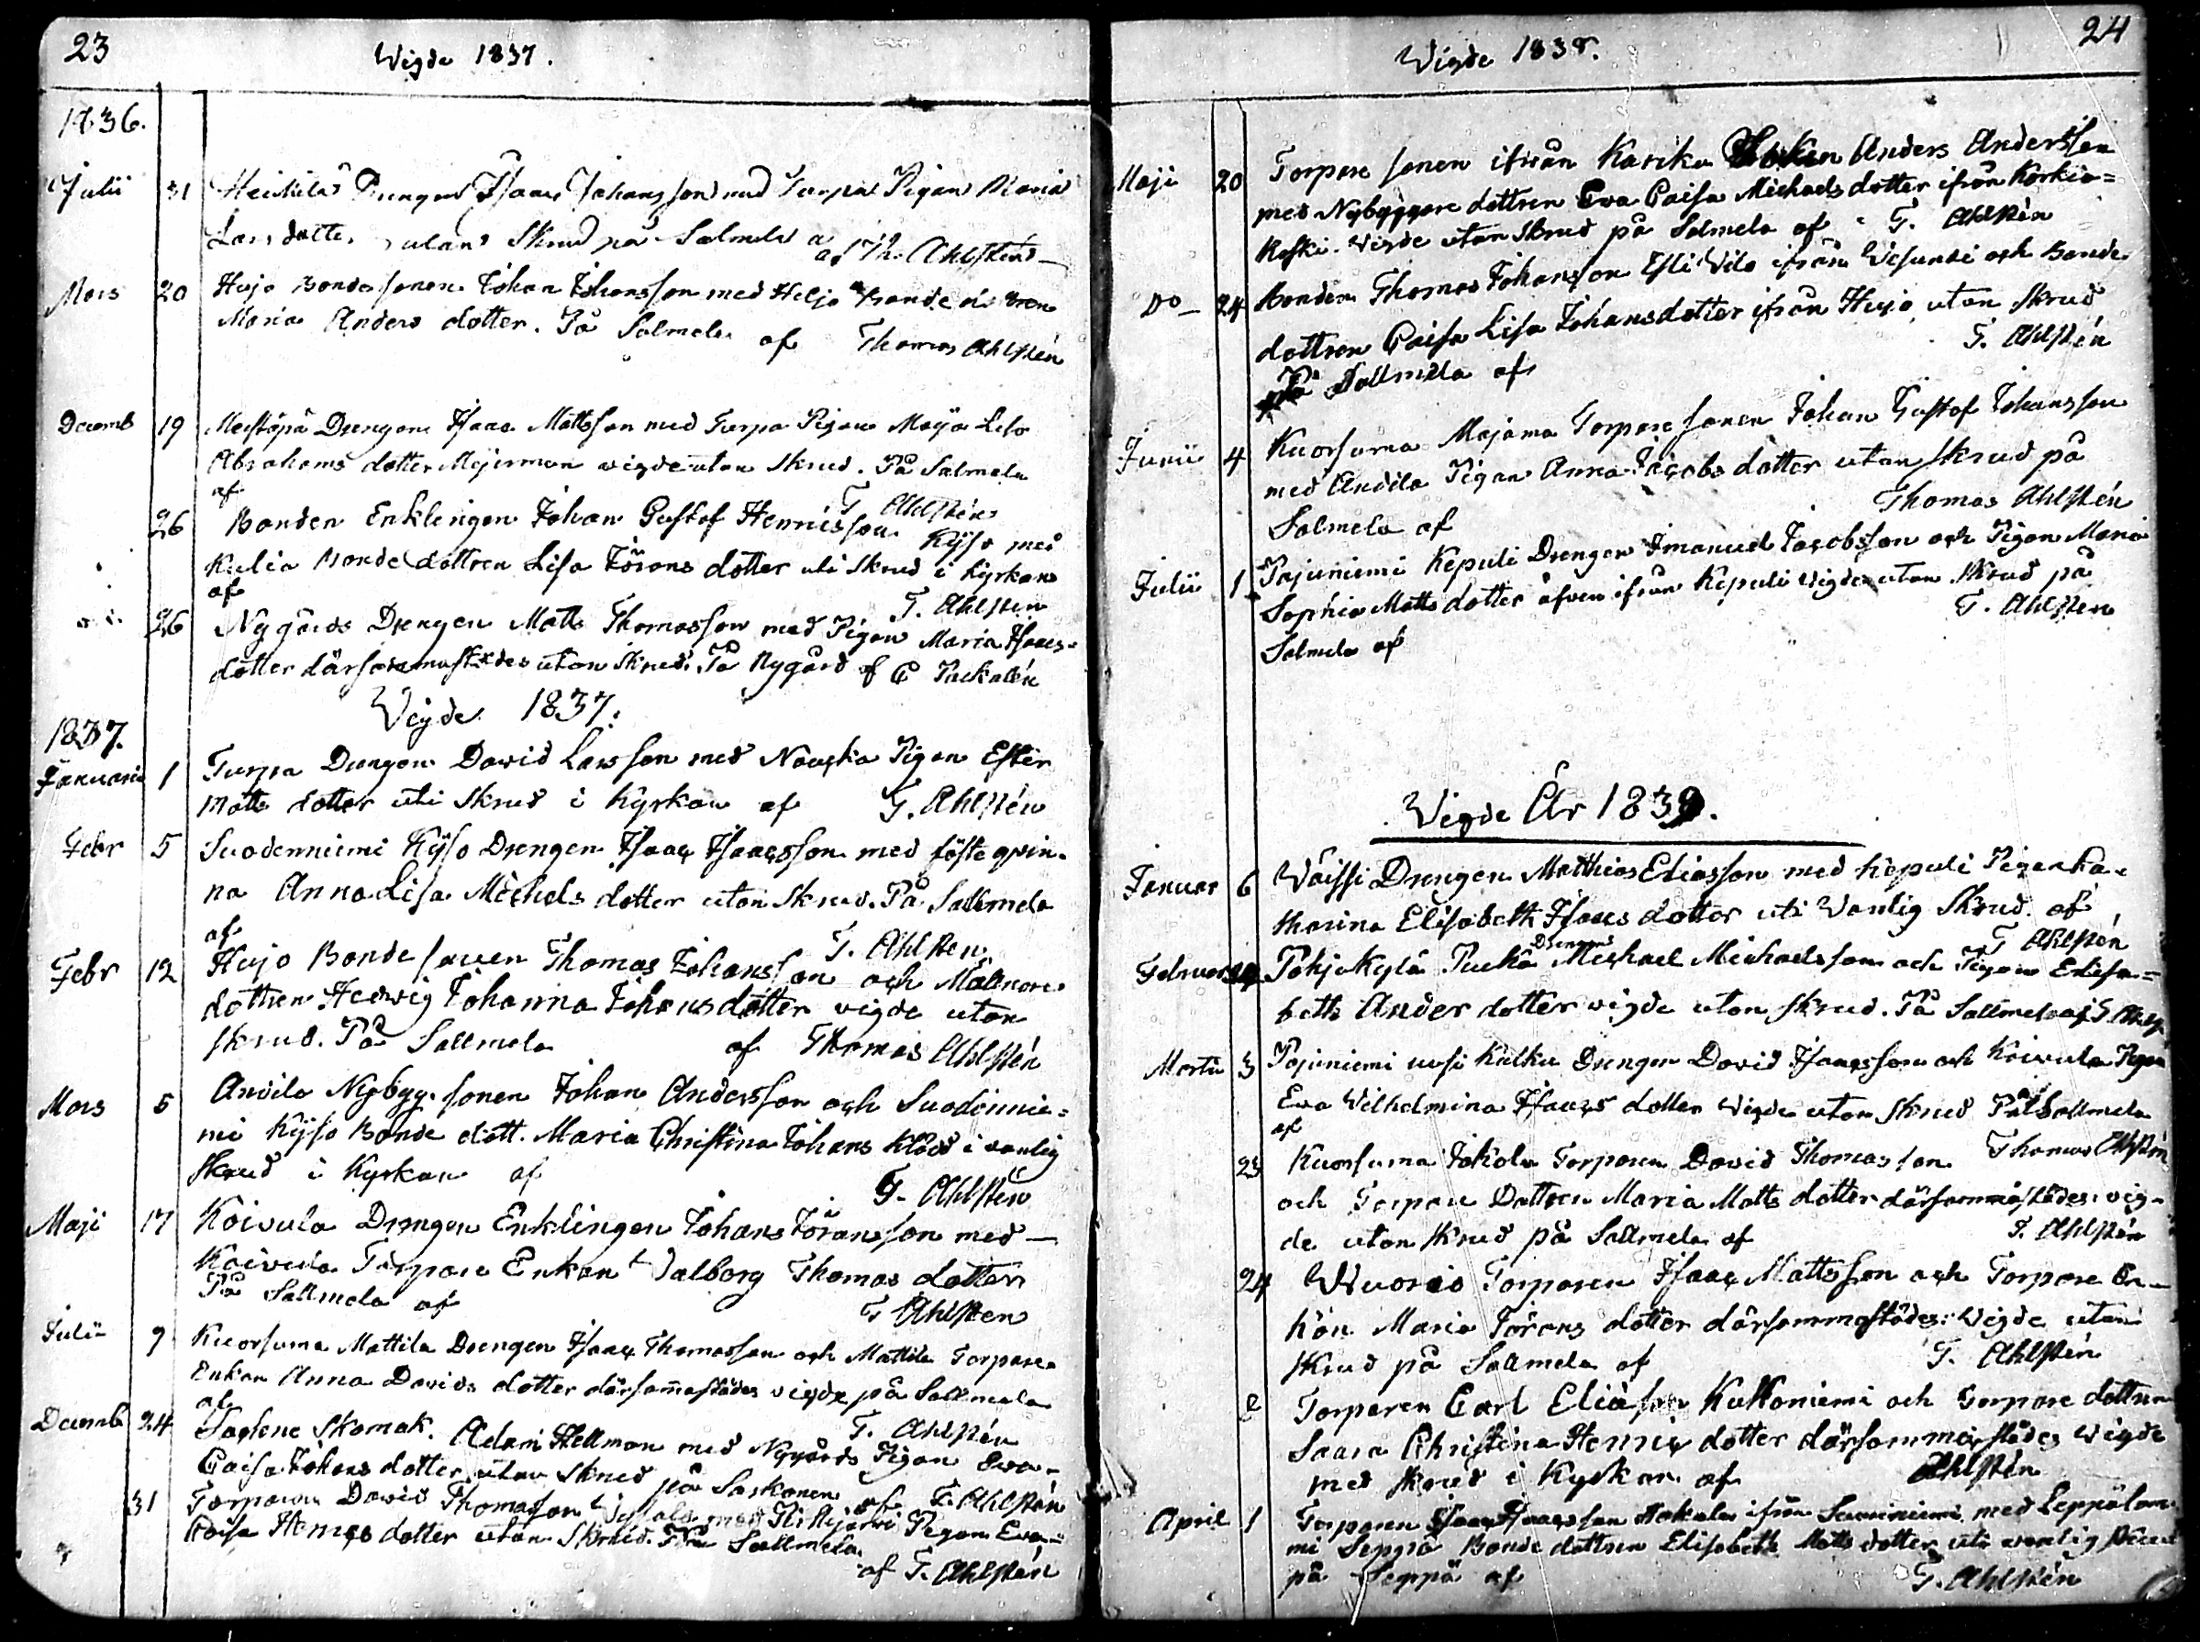 23
Wigde 1837.
1836.
Julii 31 Heickilä Drengen Isaac Johansson med Turpa Pigan Maria
Lars dotter utan Skrud på Salmela
af Th. Ahlstén
Mars 20 Hujo Bondesonen Johan Johansson med Heljo Bonde dottren
Maria Anders dotter. På Salmela af Thomas Ahlstén
Decemb 19 Drengen Isaac Mattsson med Turpa Pigan Maija Lisa
Abrahams dotter wigde utan Skrud. På Salmela
af T. Ahlstén
26 Bonden Enklingen Johan Gustof Henricsson Kyso med
Kulia Bonde dottren Lisa Jörans dotter uti Skrud i kyrkan
af T. Ahlstén
26 Nygårds Drengen Matts Thomasson med Pigan Maria Isaacs-
dotter därsammastädes utan Skrud. På Nygård af C Packalén
Wigde 1837.
1837.
Januarii 1 Turpa Drengen David Larsson med Nauska Pigan Ester
Matts dotter uti Skrud i kyrkan af T. Ahlstén
Febr 5 Suodenniemi Kyso Drengen Isaac Isaacsson med fästeqvin-
na Anna Lisa Michels dotter utan Skrud. På Sallmela
af T. Ahlsten
Febr 12 Hujo Bonde sonen Thomas Johansson och
dottren Hedwig Johanna Johans dotter vigde utan
skrud. På Sallmela af Thomas Ahlstén
Mars 5 Anvila Nybygg. sonen Johan Andersson och Suodennie-
mi Kyso Bonde dott. Maria Christina Johans klädd i vanlig
skrud i Kyrkan af T. Ahlstén
Maji 17 Koivula Drengen Enklingen Johans Jöransson med
Koivula Torpare Enkan Valborg Thomas dotter
På Sallmela af T Ahlsten
Julii 9 Kuorsuma Mattila Drengen Isaac Thomasson och Mattila Torpare
Enkan Anna Davids dotter därsammastädes vigde på Sallmela
af T. Ahlstén
Decemb 24 Skomak. Adam Hellman med Nygårds Pigan Eva
Caisa Johans dotter utan skrud på Saskanen af T. Ahlstén
31 Torparen David Thomasson med Pigan Eva
Caisa Henrics dotter utan Skrud. På Sallmela
af T. Ahlstén
24
Wigde 1838.
Maji 20 Torpare sonen ifrån Kariku Socken Anders Andersson
med Nybyggare dottren Eva Caisa Michaels dotter ifrån Körkia-
Koski. Wigde utan skrud på Salmela af T. Ahlstén
Do 24 Bonden Thomas Johansson Esli Vilo ifrån Wesunti och Bonde
dottren Caisa Lisa Johansdotter ifrån Hujo utan skrud
På Sallmela af T. Ahlstén
Junii 4 Kuorsuma Majama Torpare sonen Johan Gustof Johansson
med Andila Pigan Anna Jacobs dotter utan skrud på
Salmela af Thomas Ahlstén
Julii 1 Pajuniemi Kepuli Drengen Imanuel Jacobsson och Pigan Maria
Sophia Matts dotter äfven ifrån Kepuli wigde utan skrud på
Salmela af T. Ahlsten
Wigde År 1839.
Januar 6 Wäissi Drengen Matthias Eliasson med Kepuli Pigan Ka-
tharina Elisabeth Isaacs dotter uti Wanlig Skrud af
T Ahlstén
Februar Pohjakylä Puckä Drengen Michael Michaelsson och Pigan Elisa-
beth Anders dotter vigde utan skrud. På Sallmela af T. Ahlst
Martii 3 Pajuniemi uusi Kulku Drengen David Isaacsson och Koivula Pigan
Eva Wilhelmina Isaacs dotter Wigde utan skrud På Sallmela
af Thomas Ahlstén
25 Kuorsuma Jokela Torparen David Thomasson
och Torpare Dottren Maria Matts dotter därsammastädes vig-
de utan skrud på Sallmela af T. Ahlstén
24 Wuorio Torparen Isaac Mattsson och Torpare En-
kan Maria Jörans dotter därsammastädes Wigde utan
skrud på Sallmela af T. Ahlstén
Torparen Carl Eliasson Kulkoniemi och Torpare dottren
Saara Christina Henrics dotter därsammastädes Wigde
med skrud i Kyrkan af Ahlstén
April 1 Torparen Isaac Isaacsson ifrån med Leppälam-
mi Seppä Bonde dottren Elisabeth Matts dotter uti vanlig skrud
på Seppä af T. Ahlstén